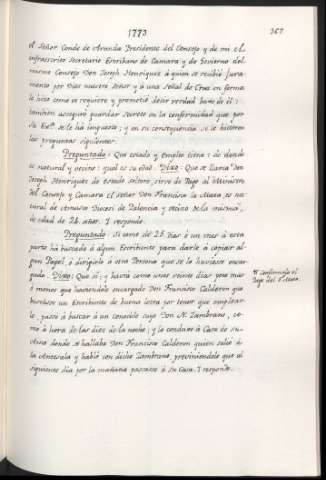 1773
367
el Señor Conde de Aranda Presidente del Consejo y de mi el
infrascrito Secretario Escribano de Camara y de Govierno del
mismo Consejo Don Joseph Henriquez á quien se recibió Jura-
mento por Dios nuestro Señor y á una Señal de Cruz en forma
le hizo como se requiere y prometió decir verdad
tambien aseguró guardar secreto en la conformidad que por
su Exª. se le ha impuesto; y en su consequencia se le hicieron
las preguntas siguientes.
Preguntado: Que estado y empleo tiene: de donde
es natural y vecino: qual es su edad. Dixo: Que se llama Don
Joseph Henriquez de estado soltero, sirve de Page al Ministro
del Consejo y Camara el Señor Don Francisco la Mata, es na-
tural de Amusco Diocesi de Palencia y vecino de la misma,
de edad de 24. años. Y responde.
Preguntado. Si como de 25. dias á un mes á esta
parte há buscado á algun Escribiente para darle á copiar al-
gun Papel, ó dirigirle á otra Persona que se lo huviese encar-
gado. Dixo: Que sí; y haría como unos veinte dias poco mas
ó menos que haviendole encargado Don Francisco Calderon que
buscase un Escribiente de buena letra por tener que emplear-
le, pasó á buscar á un conocido suyo Don N. Zambrano, co-
mo á hora de las diez de la noche; y le conduxo á Casa de su
Amo donde se hallaba Don Francisco Calderon quien salió á
la Antesala y habló con dicho Zambrano, previniendole que al
siguiente dia por la mañana pasasse á su Casa. Y responde.